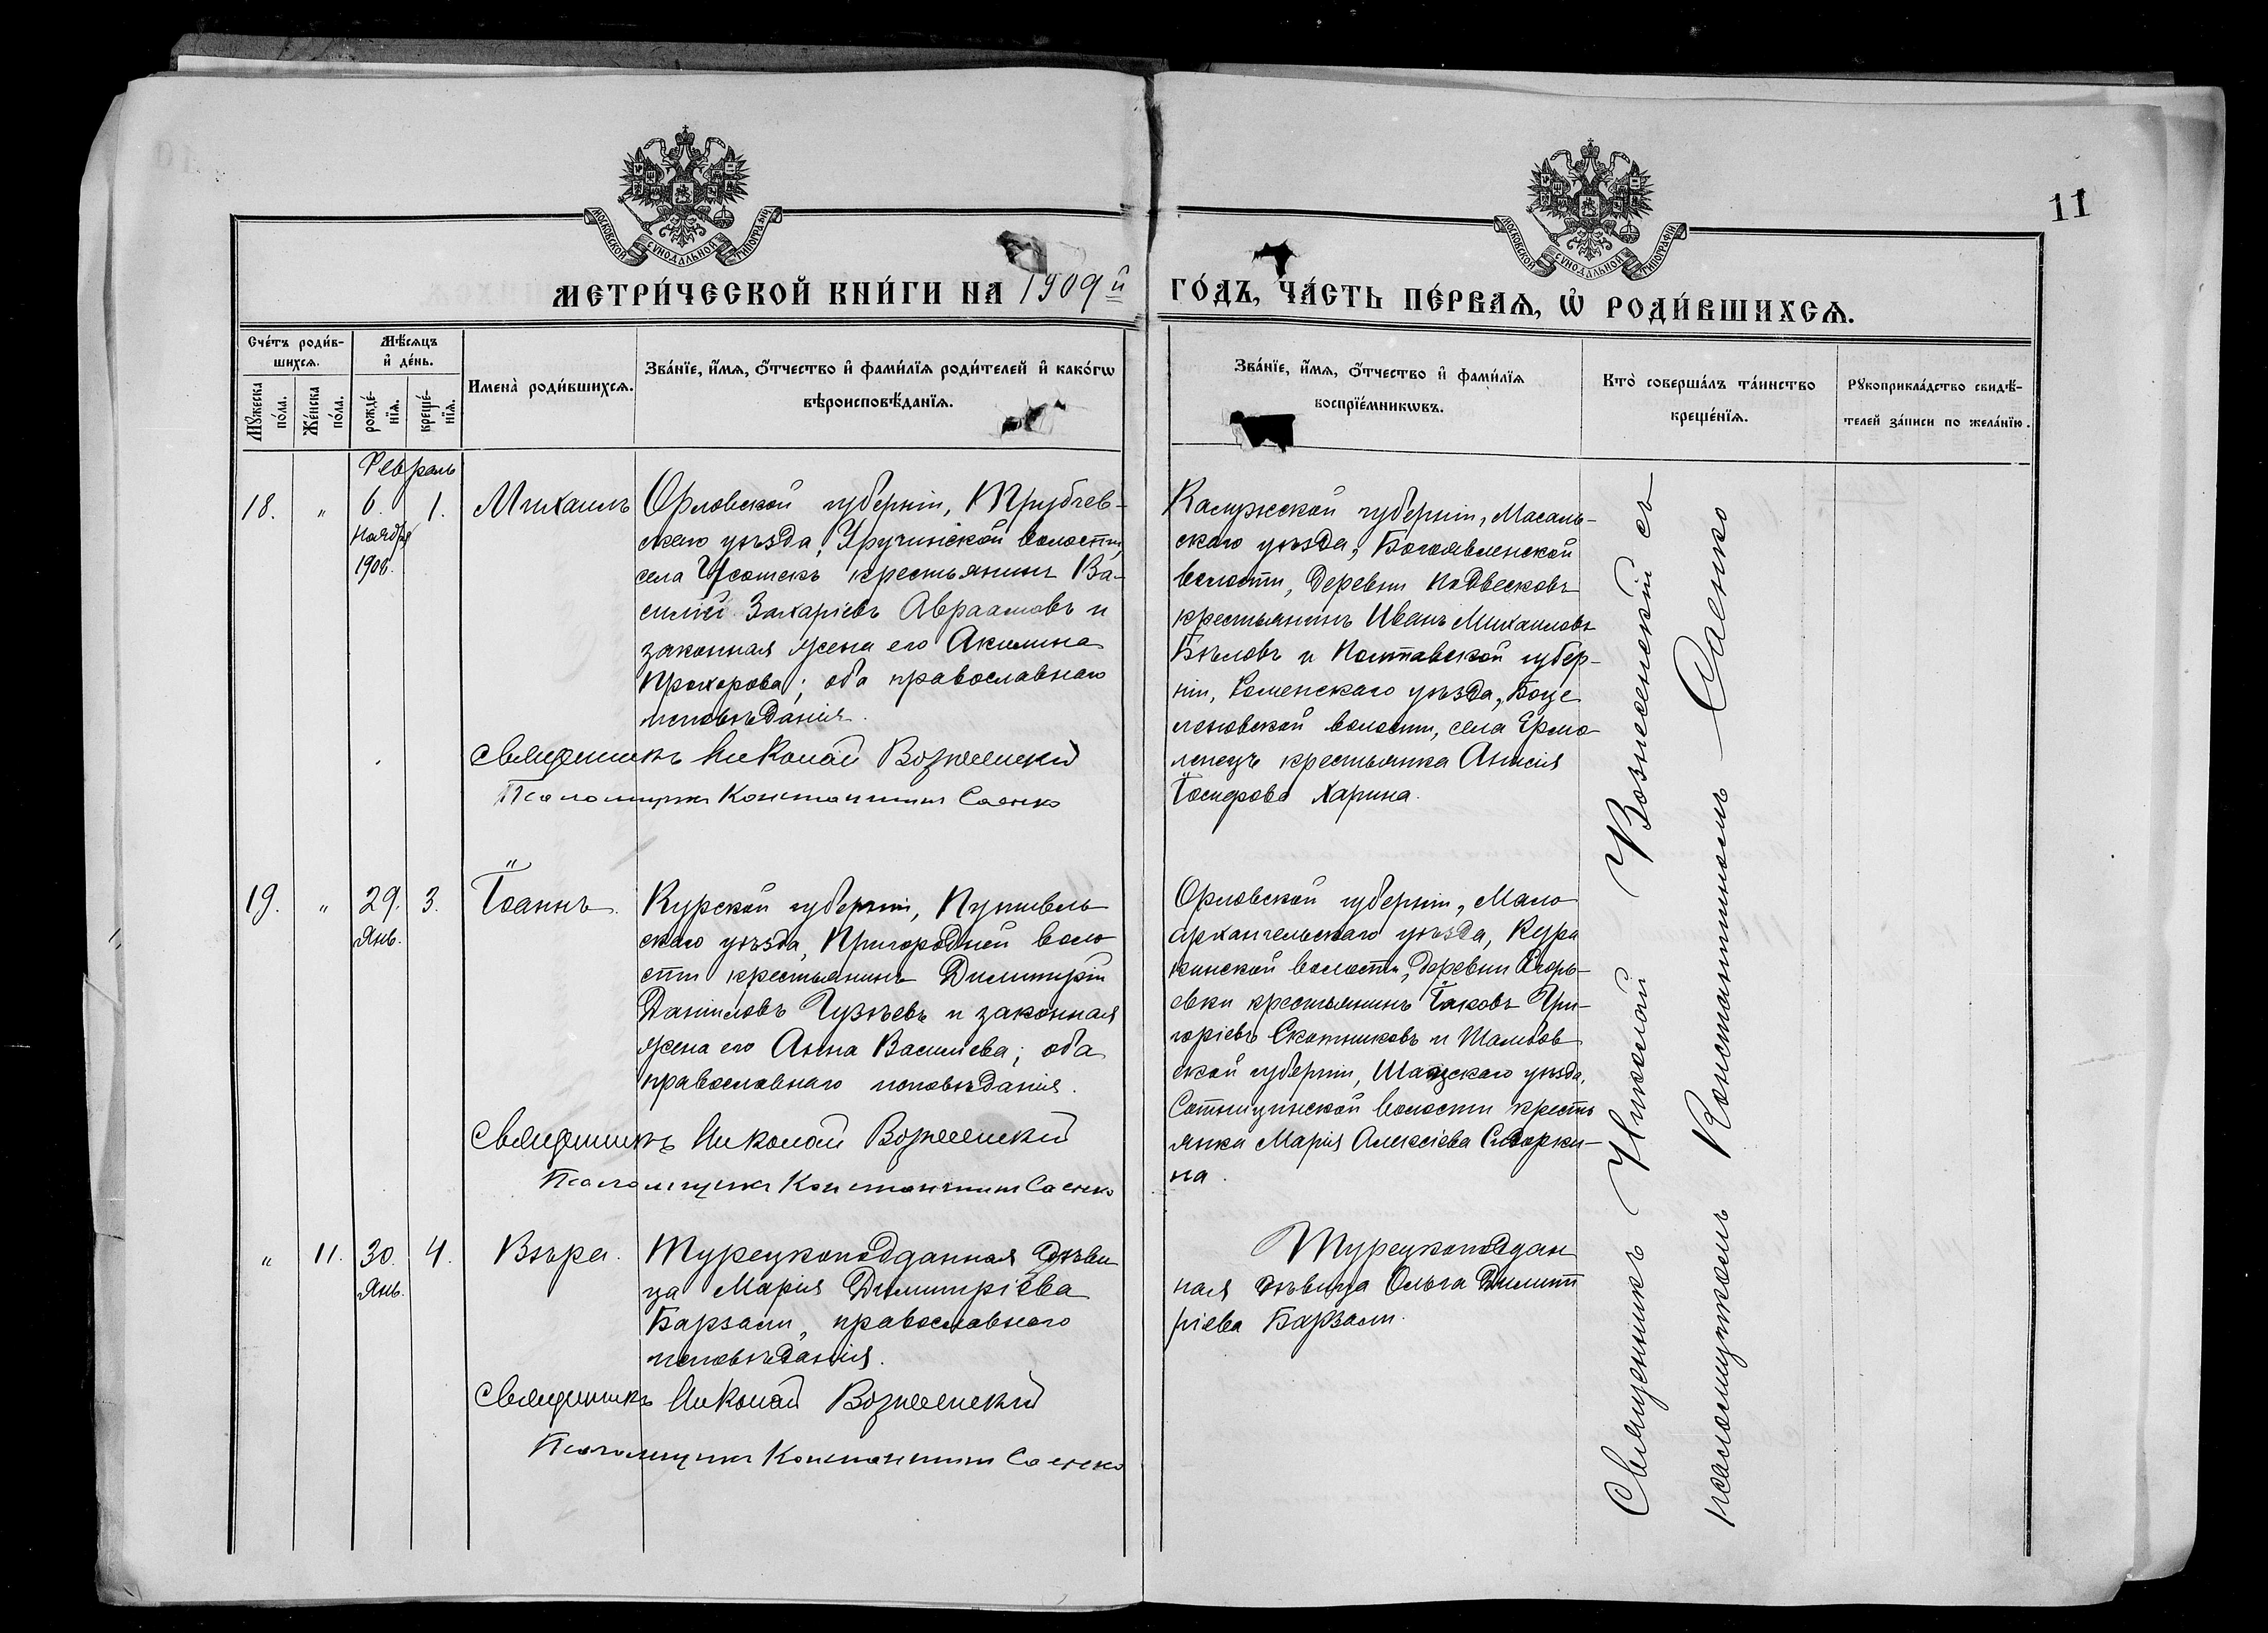 11
МОСКОВСКОЙ СѴНОДАЛЬНОЙ ТИПОГРАФІИ
МОСКОВСКОЙ СѴНОДАЛЬНОЙ ТИПОГРАФІИ
МЕТРИ́ЧЕСКОЙ КНИ́ГИ НА 1909й
ГО́ДЪ, ЧА́СТЬ ПЕ́РВАѦ, Ѡ҆ РОДИ́ВШИХСѦ.
Сче́тъ роди́в-
шихсѧ.
Мꙋ́жеска
по́ла.
Же́нска
по́ла.
Мѣ́сѧцъ
и҆ де́нь.
рожде́-
нїѧ.
креще́-
нїѧ.
Имена̀ роди́вшихсѧ.
Зва́нїе, и҆́мѧ, ѻ҆́тчество и҆ фами́лїѧ роди́телей и҆ како́гѡ
вѣроисповѣ́данїѧ.
Зва́нїе, и҆́мѧ, ѻ҆́тчество и҆ фами́лїѧ
воспрїе́мникѡвъ.
Кто̀ соверша́лъ та́инство
креще́нїѧ.
Рꙋкоприкла́дство свидѣ́-
телей за́писи по жела́нїю.
Февраль
18. " 6. 1. Михаилъ
Ноября
1908.
Орловской губерніи, Трубчев-
скаго уѣзда, Уручинской волости,
села крестьянинъ Ва-
силій Захаріевъ Авраамовъ и
законная жена его Акилина
Прохорова; оба православнаго
исповѣданія.
Священникъ Николай Вознесенскій
Псаломщикъ Константинъ Саенко
Калужской губерніи, Масаль-
скаго уѣзда, Богоявленской
волости, деревни Подвесковъ
крестьянинъ Иванъ Михаиловъ
Бѣловъ и Полтавской губер-
ніи, Роменскаго уѣзда, Боце
меновской волости, села Ермо
линецъ крестьянка Анисія
Іосифова Харина.
19. " 29. 3. Іоаннъ.
Янв.
Курской губерніи, Путивль
скаго уѣзда, Пригородней воло
сти крестьянинъ Димитрій
Даніиловъ Гузѣевъ и законная
жена его Анна Василіева; оба
православнаго исповѣданія.
Священникъ Николай Вознесенскій
Псаломщикъ Константинъ Саенко
Орловской губерніи, Мало
архангельскаго уѣзда, Кура
кинской волости, деревни Егорь-
евки крестьянинъ Іаковъ Гри-
горіевъ Скотниковъ и Тамбов
ской губерніи, Шацскаго уѣзда,
Сотницинской волости кресть
янка Марія Алексіева Сиворки-
на.
" 11. 30. 4. Вѣра.
Янв.
Турецкоподданная дѣви
ца Марія Димитріева
Барзами, православнаго
исповѣданія.
Священникъ Николай Вознесенскій
Псаломщикъ Константинъ Саенко
Турецкоподдан
ная дѣвица Ольга Димит
ріева Барзами.
Священникъ Николай Вознесенскій съ
псаломщикомъ Константиномъ Саенко